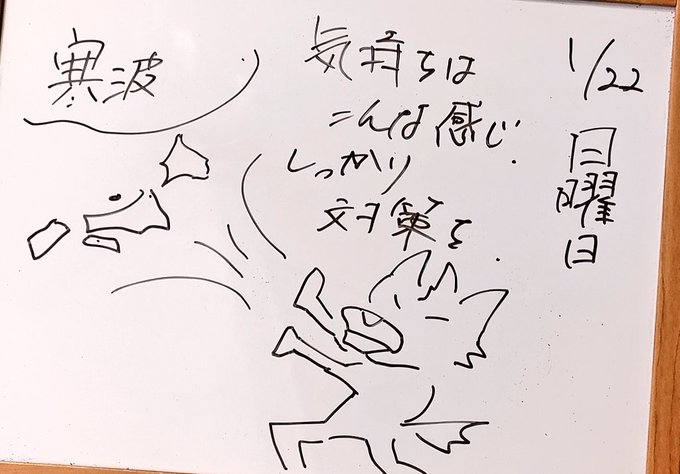 1/22
日曜日
気持ちは
こんな感じ.
しっかり
対策を.
寒波